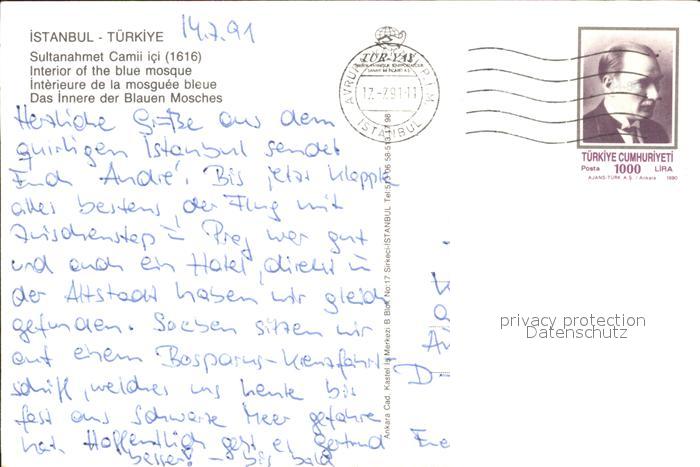 İSTANBUL - TÜRKİYE 14.7.91
Sultanahmet Camii içi (1616)
Interior of the blue mosque
İntèrieure de la mosguée bleue
Das İnnere der Blauen Mosches
Herzliche Grüße aus dem
quirligen Istanbul sendet
Euch André. Bis jetzt klappte
alles bestens, der Flug mit
Zwischenstop in Prag war gut
und auch ein Hotel, direkt in
der Altstadt haben wir gleich
gefunden. Soeben sitzen wir
auf einem Bosporus-Kreuzfahrt-
schiff, welches uns heute bis
fast ans Schwarze Meer gefahren
hat. Hoffentlich geht es Gertrud
besser! – bis bald
TÜR-YAY
İSTANBUL
17-7.91-11
TÜRKİYE CUMHURİYETİ
Posta 1000 LİRA
AJANS-TÜRK A.Ş./Ankara 1990
Ankara Cad. Kastel İş Merkezi B Blok No:17 Sirkeci-İSTANBUL
D-
privacy protection
Datenschutz